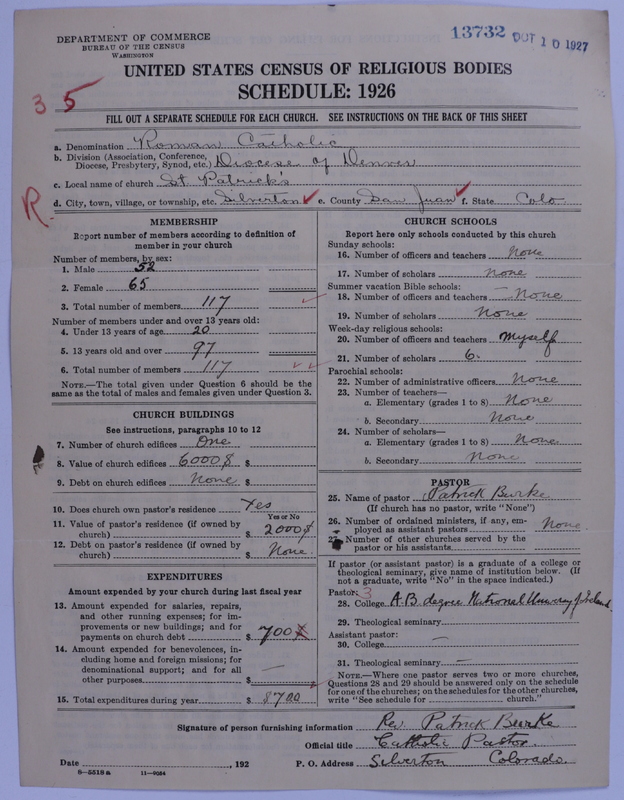 13732 OCT 10 1927
DEPARTMENT OF COMMERCE
BUREAU OF THE CENSUS
WASHINGTON
UNITED STATES CENSUS OF RELIGIOUS BODIES
SCHEDULE: 1926
3 5
FILL OUT A SEPARATE SCHEDULE FOR EACH CHURCH. SEE INSTRUCTIONS ON THE BACK OF THIS SHEET
a. Denomination Roman Catholic
b. Division (Association, Conference, Diocese, Presbytery, Synod, etc.) Diocese of Denver
c. Local name of church St. Patrick's
d. City, town, village, or township, etc. Silverton e. County San Juan f. State Colo
R.
MEMBERSHIP
Report number of members according to definition of
member in your church
Number of members, by sex:
1. Male 52
2. Female 65
3. Total number of members 117
Number of members under and over 13 years old:
4. Under 13 years of age 20
5. 13 years old and over 97
6. Total number of members 117
NOTE.—The total given under Question 6 should be
same as the total of males and females given under Question 3.
CHURCH BUILDINGS
See instructions, paragraphs 10 to 12
7. Number of church edifices One
8. Value of church edifices 6000$ $
9. Debt on church edifices None $
10. Does church own pastor's residence Yes
Yes or No
11. Value of pastor's residence (if owned by
church) $ 2000$
12. Debt on pastor's residence (if owned by
church) $ None
EXPENDITURES
Amount expended by your church during last fiscal year
13. Amount expended for salaries, repairs,
and other running expenses; for im-
provements or new buildings; and for
payments on church debt $ 700
14. Amount expended for benevolences, in-
cluding home and foreign missions; for
denominational support; and for all
other purposes $ —
15. Total expenditures during year $ 700
CHURCH SCHOOLS
Report here only schools conducted by this church
Sunday schools:
16. Number of officers and teachers None
17. Number of scholars None
Summer vacation Bible schools:
18. Number of officers and teachers — None
19. Number of scholars None
Week-day religious schools:
20. Number of officers and teachers Myself
21. Number of scholars 6.
Parochial schools:
22. Number of administrative officers None
23. Number of teachers—
a. Elementary (grades 1 to 8) None
b. Secondary None
24. Number of scholars—
a. Elementary (grades 1 to 8) None
b. Secondary None
PASTOR
25. Name of pastor Patrick Burke
(If church has no pastor, write "None")
26. Number of ordained ministers, if any, em-
ployed as assistant pastors None
27. Number of other churches served by the
pastor or his assistants
If pastor (or assistant pastor) is a graduate of a college or
theological seminary, give name of institution below. (If
not a graduate, write "No" in the space indicated.)
Pastor: 3
28. College A.B. degree National University of Ireland.
29. Theological seminary
Assistant pastor:
30. College —
31. Theological seminary —
NOTE.—Where one pastor serves two or more churches,
Questions 28 and 29 should be answered only on the schedule
for one of the churches; on the schedules for the other churches,
write "See schedule for church."
Signature of person furnishing information Rev Patrick Burke
Official title Catholic Pastor.
Date , 192 P. O. Address Silverton Colorado.
8—5518 a 11—9054